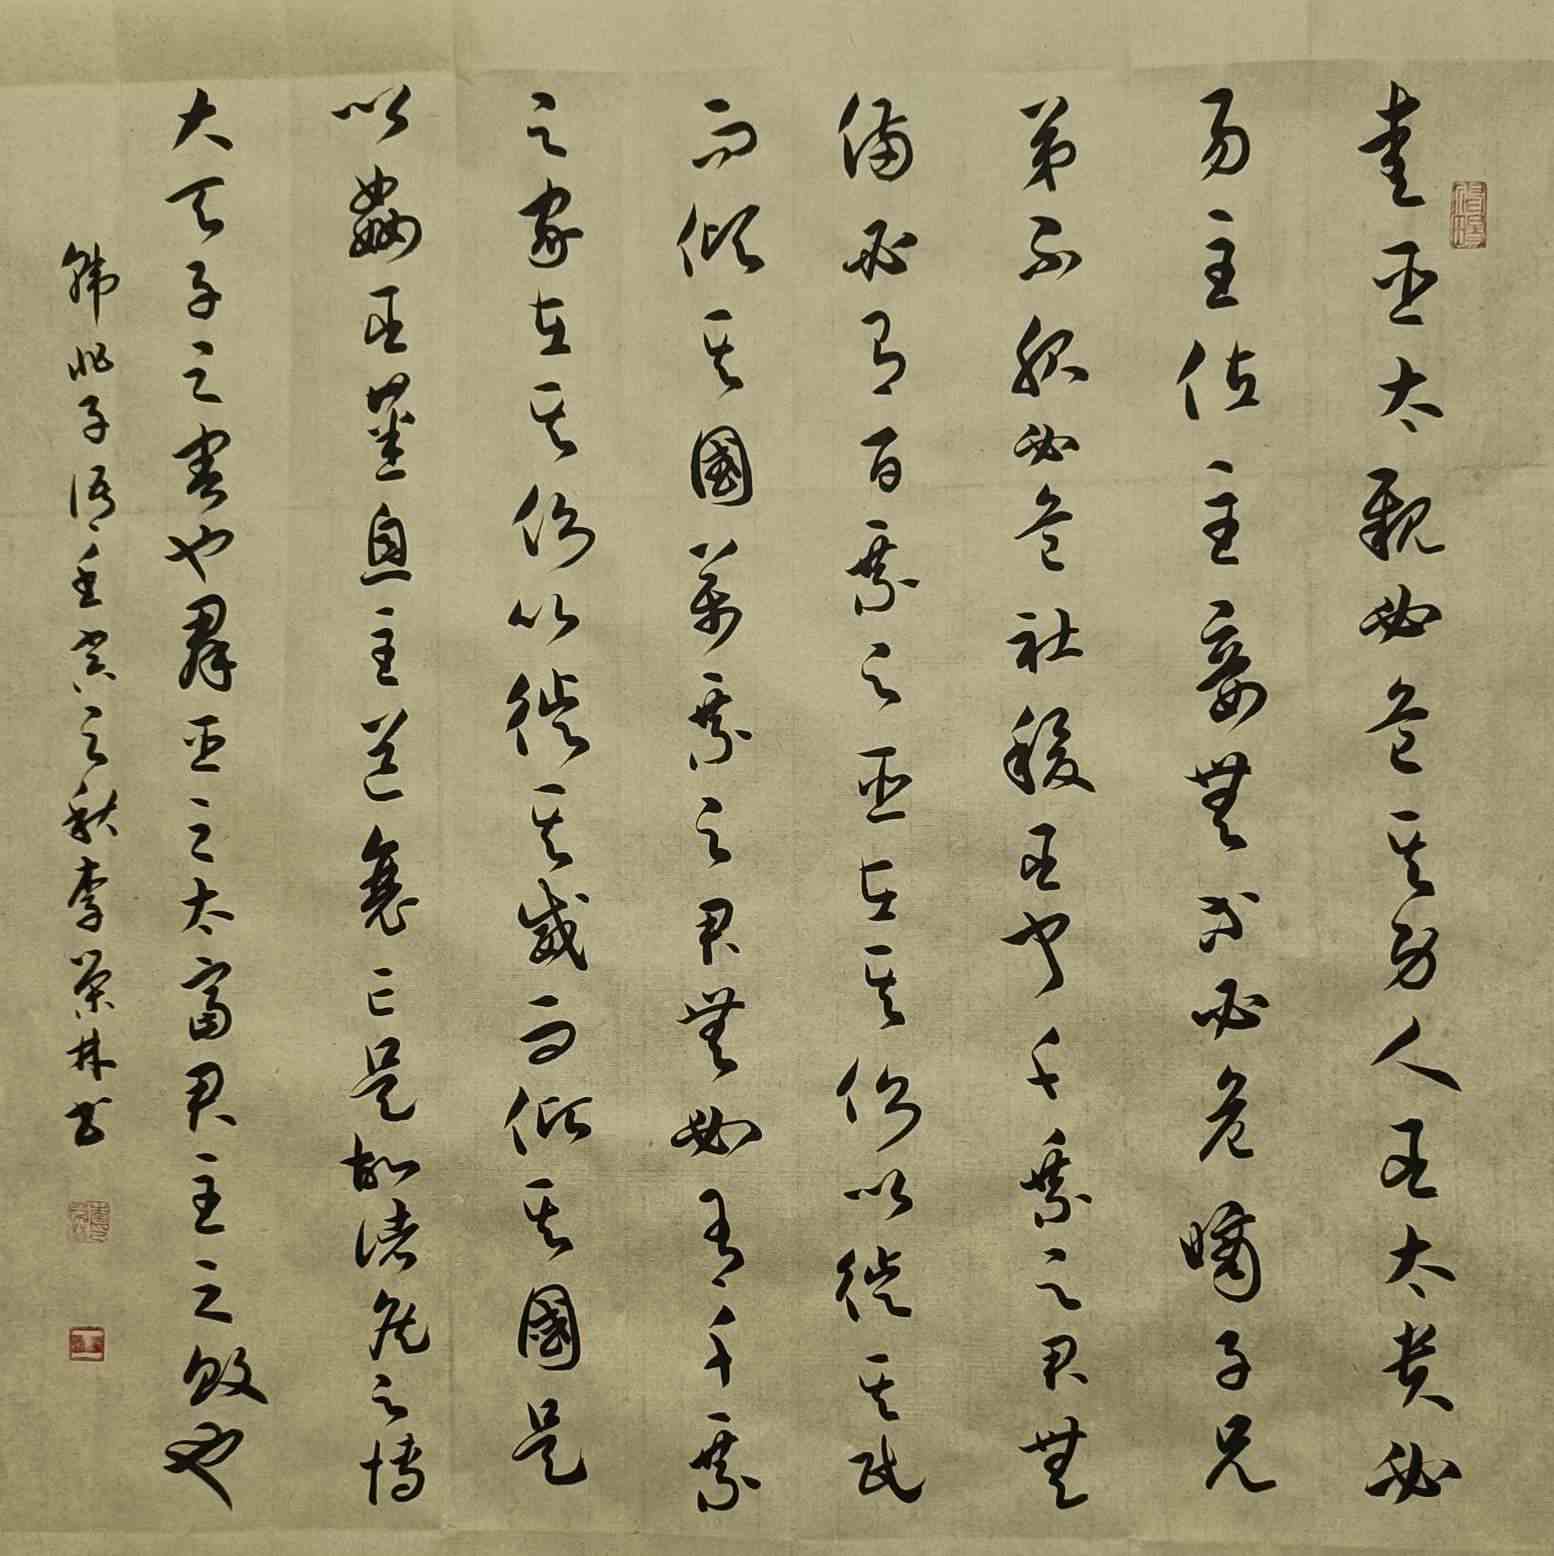 愛臣太親必危其身人臣太貴必
易主位主妾無等必危嫡子兄
弟不服必危社稷臣聞千乘之君無
備必有百乘之臣在其側以徙其民
而傾其國萬乘之君無必有千乘
之家在其側以徙其威而傾其國是
以姦臣蕃息主道衰亡是故諸侯之博
大天子之害也群臣之太富君主之敗也
韓非子語壬寅之秋李榮林書